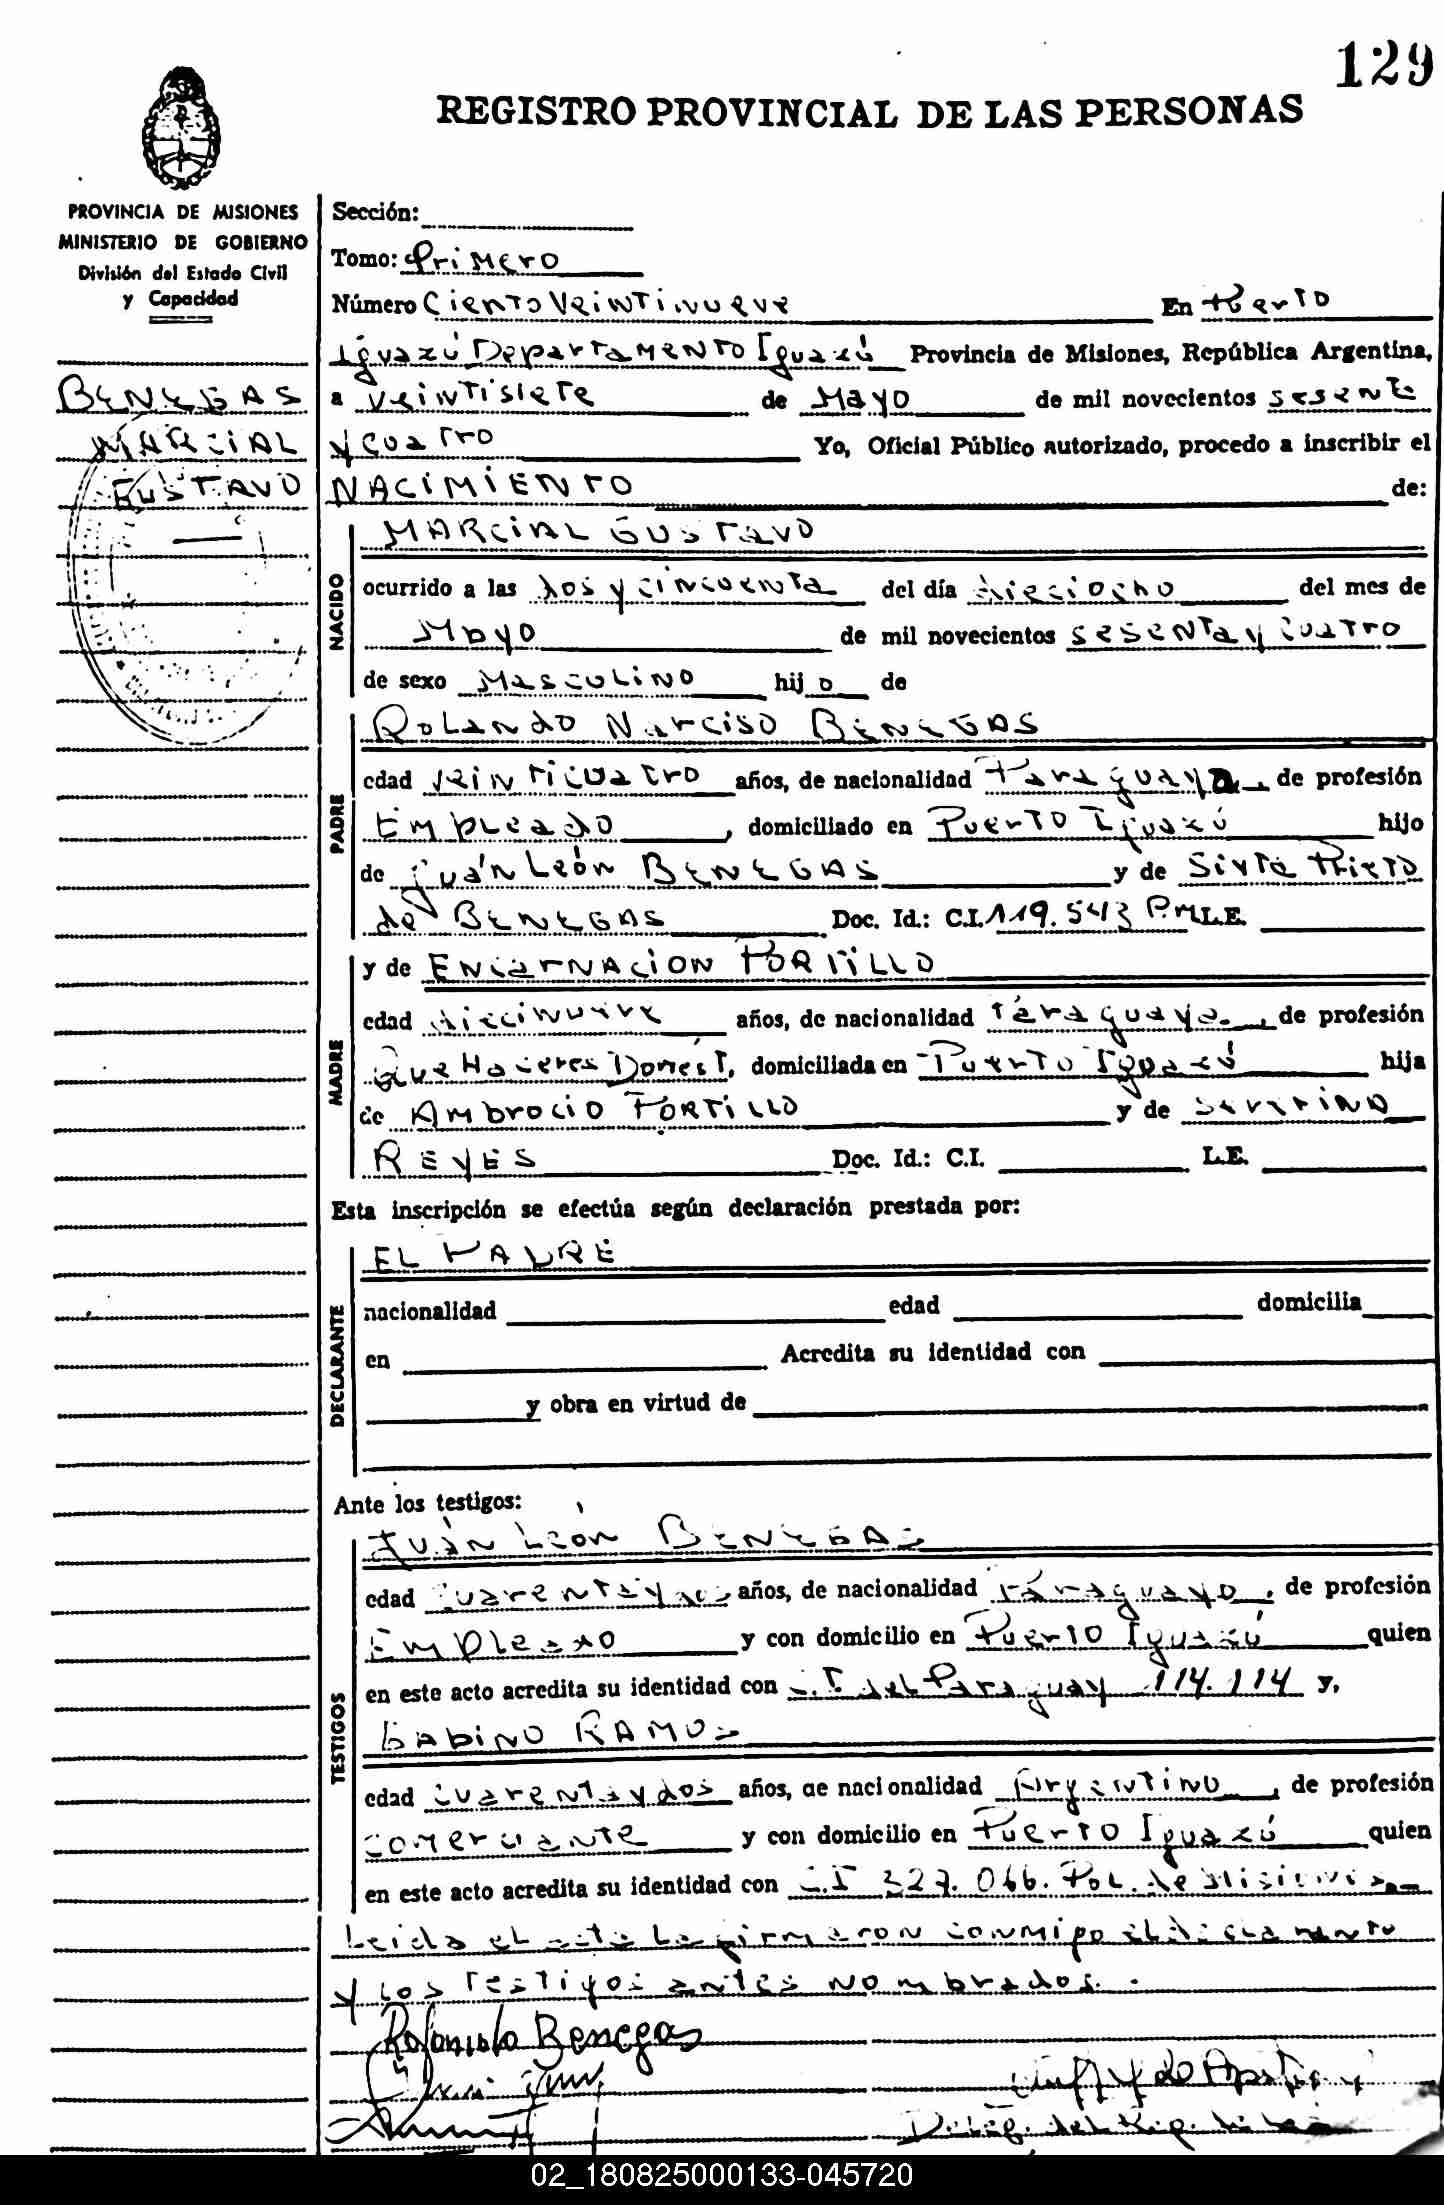 129
REGISTRO PROVINCIAL DE LAS PERSONAS
PROVINCIA DE MISIONES
MINISTERIO DE GOBIERNO
División del Estado Civil
y Capacidad
BENEGAS
MARCIAL
GUSTAVO
Sección:
Tomo: Primero
Número Ciento Veintinueve En Puerto
Iguazú Departamento Iguazú Provincia de Misiones, República Argentina,
a veintisiete de Mayo de mil novecientos sesenta
y cuatro Yo, Oficial Público autorizado, procedo a inscribir el
NACIMIENTO de:
NACIDO
MARCIAL GUSTAVO
ocurrido a las dos y cincuenta del día dieciocho del mes de
Mayo de mil novecientos sesenta y cuatro
de sexo Masculino hijo de
PADRE
Rolando Narciso BENEGAS
edad veinticuatro años, de nacionalidad Paraguaya, de profesión
Empleado, domiciliado en Puerto Iguazú hijo
de Juán León BENEGAS y de Sixta Prieto
de BENEGAS Doc. Id.: C.I. 119.543 P.M L.E.
MADRE
y de ENCARNACION PORTILLO
edad diecinueve años, de nacionalidad Paraguaya, de profesión
Que Haceres Domést, domiciliada en Puerto Iguazú hija
de Ambrocio PORTILLO y de Severina
REYES Doc. Id.: C.I. L.E.
Esta inscripción se efectúa según declaración prestada por:
DECLARANTE
EL PADRE
nacionalidad edad domicilia
en Acredita su identidad con
y obra en virtud de
Ante los testigos:
TESTIGOS
Juán León BENEGAS
edad cuarenta y dos años, de nacionalidad Paraguayo, de profesión
Empleado y con domicilio en Puerto Iguazú quien
en este acto acredita su identidad con C.I. del Paraguay 114.114 y,
Gabino RAMOS
edad cuarenta y dos años, de nacionalidad Argentino, de profesión
comerciante y con domicilio en Puerto Iguazú quien
en este acto acredita su identidad con C.I 327.066. Pol. de Misiones
Leida el acta la firmaron conmigo el declarante
y los testigos antes nombrados.
Rolando Benegas
Deleg. del Reg.
02_180825000133-045720